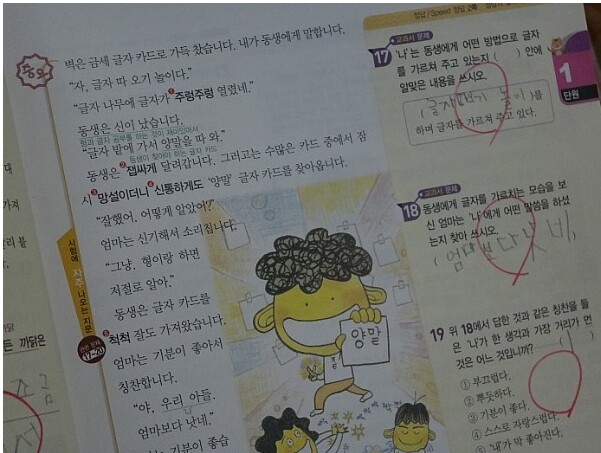 정답/Speed 정답 2쪽
중요
벽은 금세 글자 카드로 가득 찼습니다. 내가 동생에게 말합니다.
"자, 글자 따 오기 놀이다."
"글자 나무에 글자가 주렁주렁 열렸네."
동생은 신이 났습니다.
형과 글자 공부를 하는 것이 재미있어서
"글자 밭에 가서 양말을 따 와."
동생이 찾아야 하는 글자 카드
동생은 잽싸게 달려갑니다. 그리고는 수많은 카드 중에서 잠
시 망설이더니 신통하게도 '양말' 글자 카드를 찾아옵니다.
"잘했어. 어떻게 알았어?"
엄마는 신기해서 소리칩니다.
"그냥. 형이랑 하면
저절로 알아."
동생은 글자 카드를
척척 잘도 가져왔습니다.
엄마는 기분이 좋아서
칭찬합니다.
"야, 우리 아들.
엄마보다 낫네."
기분이 좋습
시험에 자주 나오는 지문
양말
교과서 문제
17 '나'는 동생에게 어떤 방법으로 글자
를 가르쳐 주고 있는지 ( ) 안에
알맞은 내용을 쓰시오.
( 글자 따기 놀이 )를
하며 글자를 가르쳐 주고 있다.
1
단원
교과서 문제
18 동생에게 글자를 가르치는 모습을 보
신 엄마는 '나'에게 어떤 말씀을 하셨
는지 찾아 쓰시오.
( 엄마보다 낫네
19 위 18에서 답한 것과 같은 칭찬을 들
은 '나'가 한 생각과 가장 거리가 먼
것은 어느 것입니까? ( 1 )
① 부끄럽다.
② 뿌듯하다.
③ 기분이 좋다.
④ 스스로 자랑스럽다.
⑤ '내'가 막 좋아진다.
까닭은